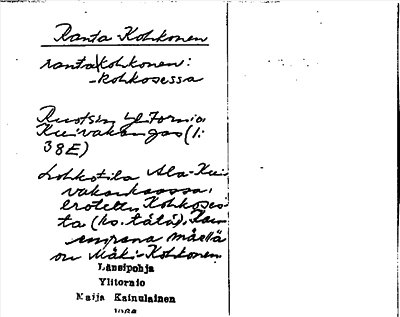 Ranta-Kohkonen
ranta|kohkonen:
-kohkosessa
Ruotsin Ylitornio
Kuivakangas (1:
38E)
Lohkotila Ala-Kui-
vakankaassa,
erotettu Kohkoses-
ta (ks. tätä).
mäellä
on Mäki-Kohkonen.
Länsipohja
Ylitornio
Maija Kainulainen